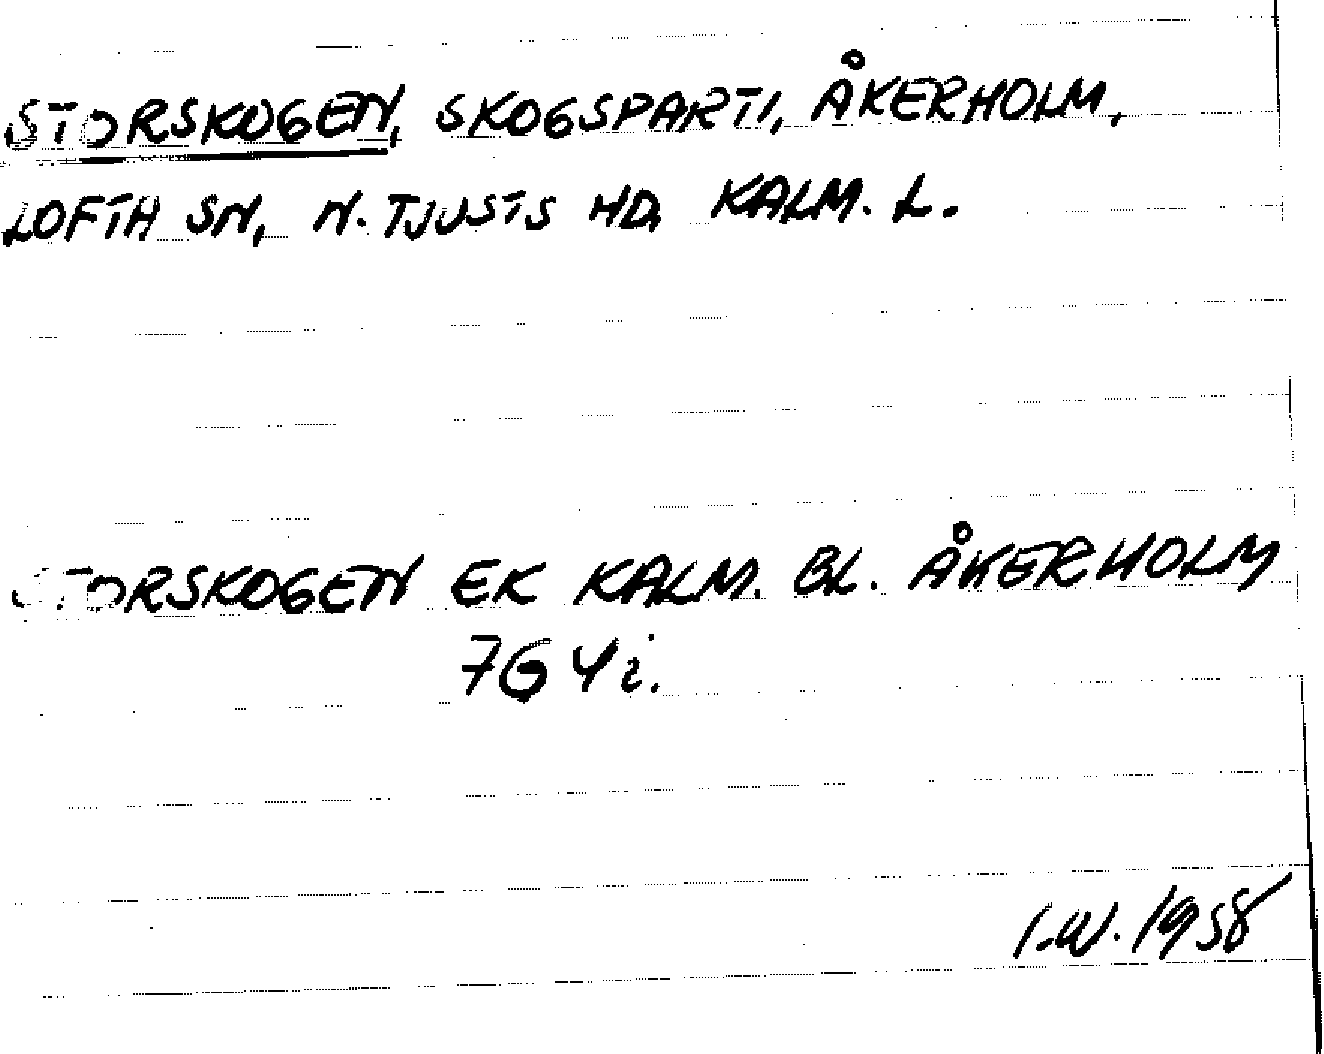 STORSKOGEN, SKOGSPARTI, ÅKERHOLM,
LOFTA SN, N. TJUSTS HD, KALM. L.
STORSKOGEN EK KALM. BL. ÅKERHOLM
7G 4i.
I.W. 1958